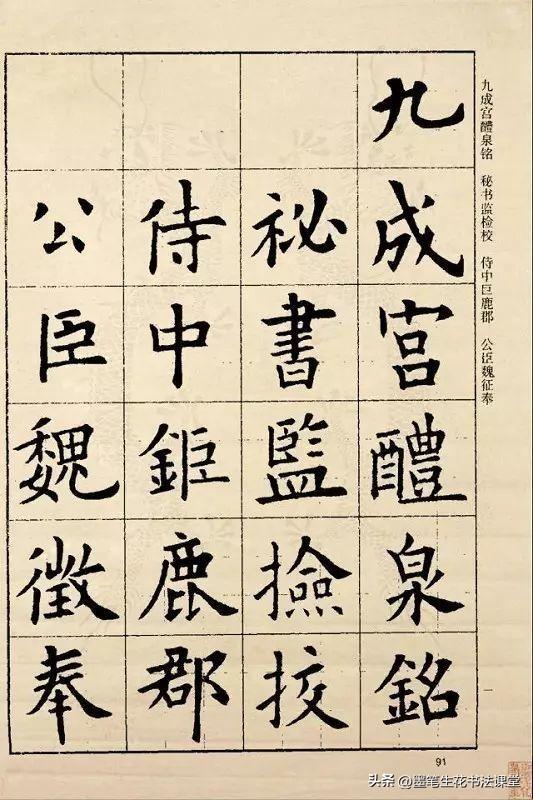 九成宫醴泉铭 秘书监检校 侍中巨鹿郡 公臣魏征奉
九成宮醴泉銘
祕書監撿挍
侍中鉅鹿郡
公臣魏徵奉
91
头条@墨笔生花书法课堂